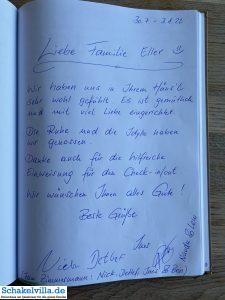 30.7 - 3.8.22
Liebe Familie Eller
Wir haben uns in Ihrem Häus'l
sehr wohl gefühlt. Es ist gemütlich
und mit viel Liebe eingerichtet.
Die Ruhe und die Idylle haben
wir genossen.
Danke auch für die hilfreiche
Einweisung für den Check-in/out
Wir wünschen Ihnen alles Gute!
Beste Grüße
Ines
Nicole Detlef
Schakelvilla.de